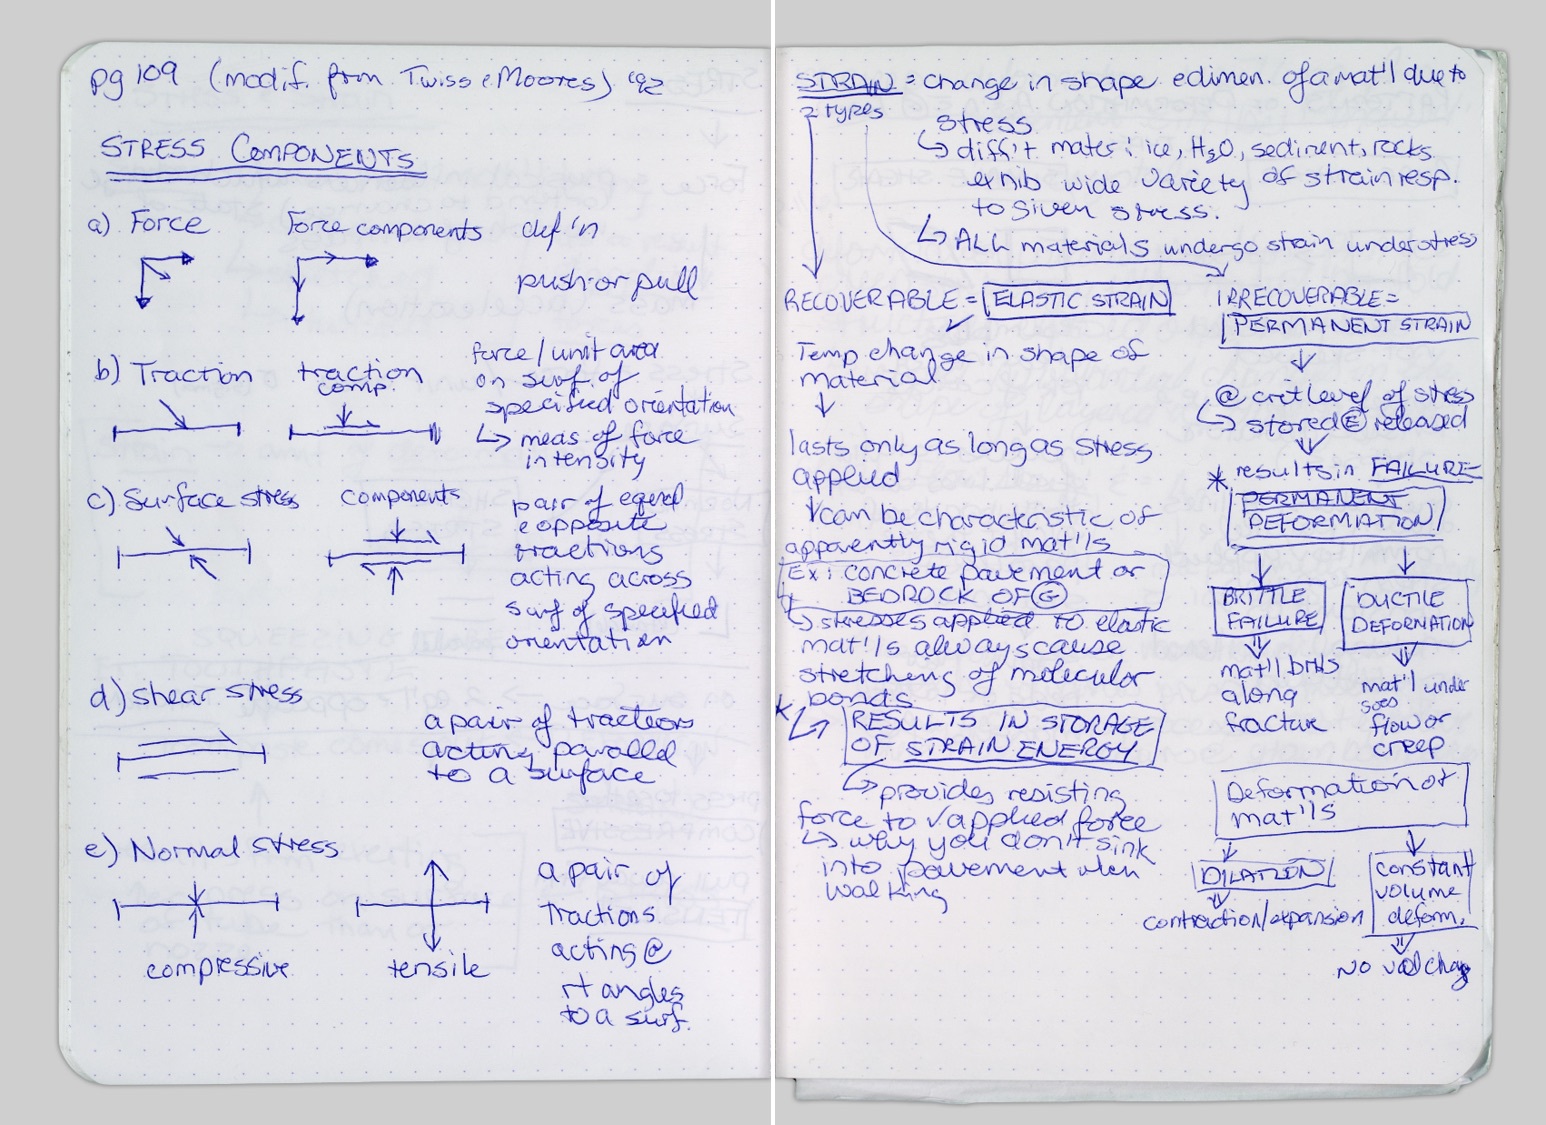 pg 109 (modif. from Twiss & Moores) '92
STRESS COMPONENTS
a) Force
Force components
def.'n
push or pull
b) Traction
traction
comp.
force / unit area
on surf. of
specified orientation
↳ meas of force
intensity
c) Surface stress
components
pair of equal
& opposite
tractions
acting across
surf of specified
orientation
d) shear stress
a pair of tractions
acting parallel
to a surface
e) Normal stress
compressive
tensile
a pair of
tractions
acting @
rt angles
to a surf.
STRAIN = change in shape & dimen. of a mat'l due to
stress
2 types
↳ diff't mater: ice, H2O, sediment, rocks
exhib wide variety of strain resp.
to given stress.
↳ ALL materials undergo strain under stress
RECOVERABLE = ELASTIC STRAIN
Temp change in shape of
material
↓
lasts only as long as stress
applied
↓ can be characteristic of
apparently rigid mat'ls
Ex: concrete pavement or
BEDROCK OF Ⓖ
↳ stresses applied to elastic
mat'ls always cause
stretching of molecular
bonds
* ↳ RESULTS IN STORAGE
OF STRAIN ENERGY
↳ provides resisting
force to √ applied force
↳ why you don't sink
into pavement when
walking
IRRECOVERABLE =
PERMANENT STRAIN
@ crit level of stress
↳ stored Ⓔ released
* results in FAILURE
PERMANENT
DEFORMATION
BRITTLE
FAILURE
mat'l brks
along
fracture
DUCTILE
DEFORMATION
mat'l under
goes
flow or
creep
Deformation of
mat'ls
DILATION
contraction/expansion
constant
volume
deform.
NO vol chang